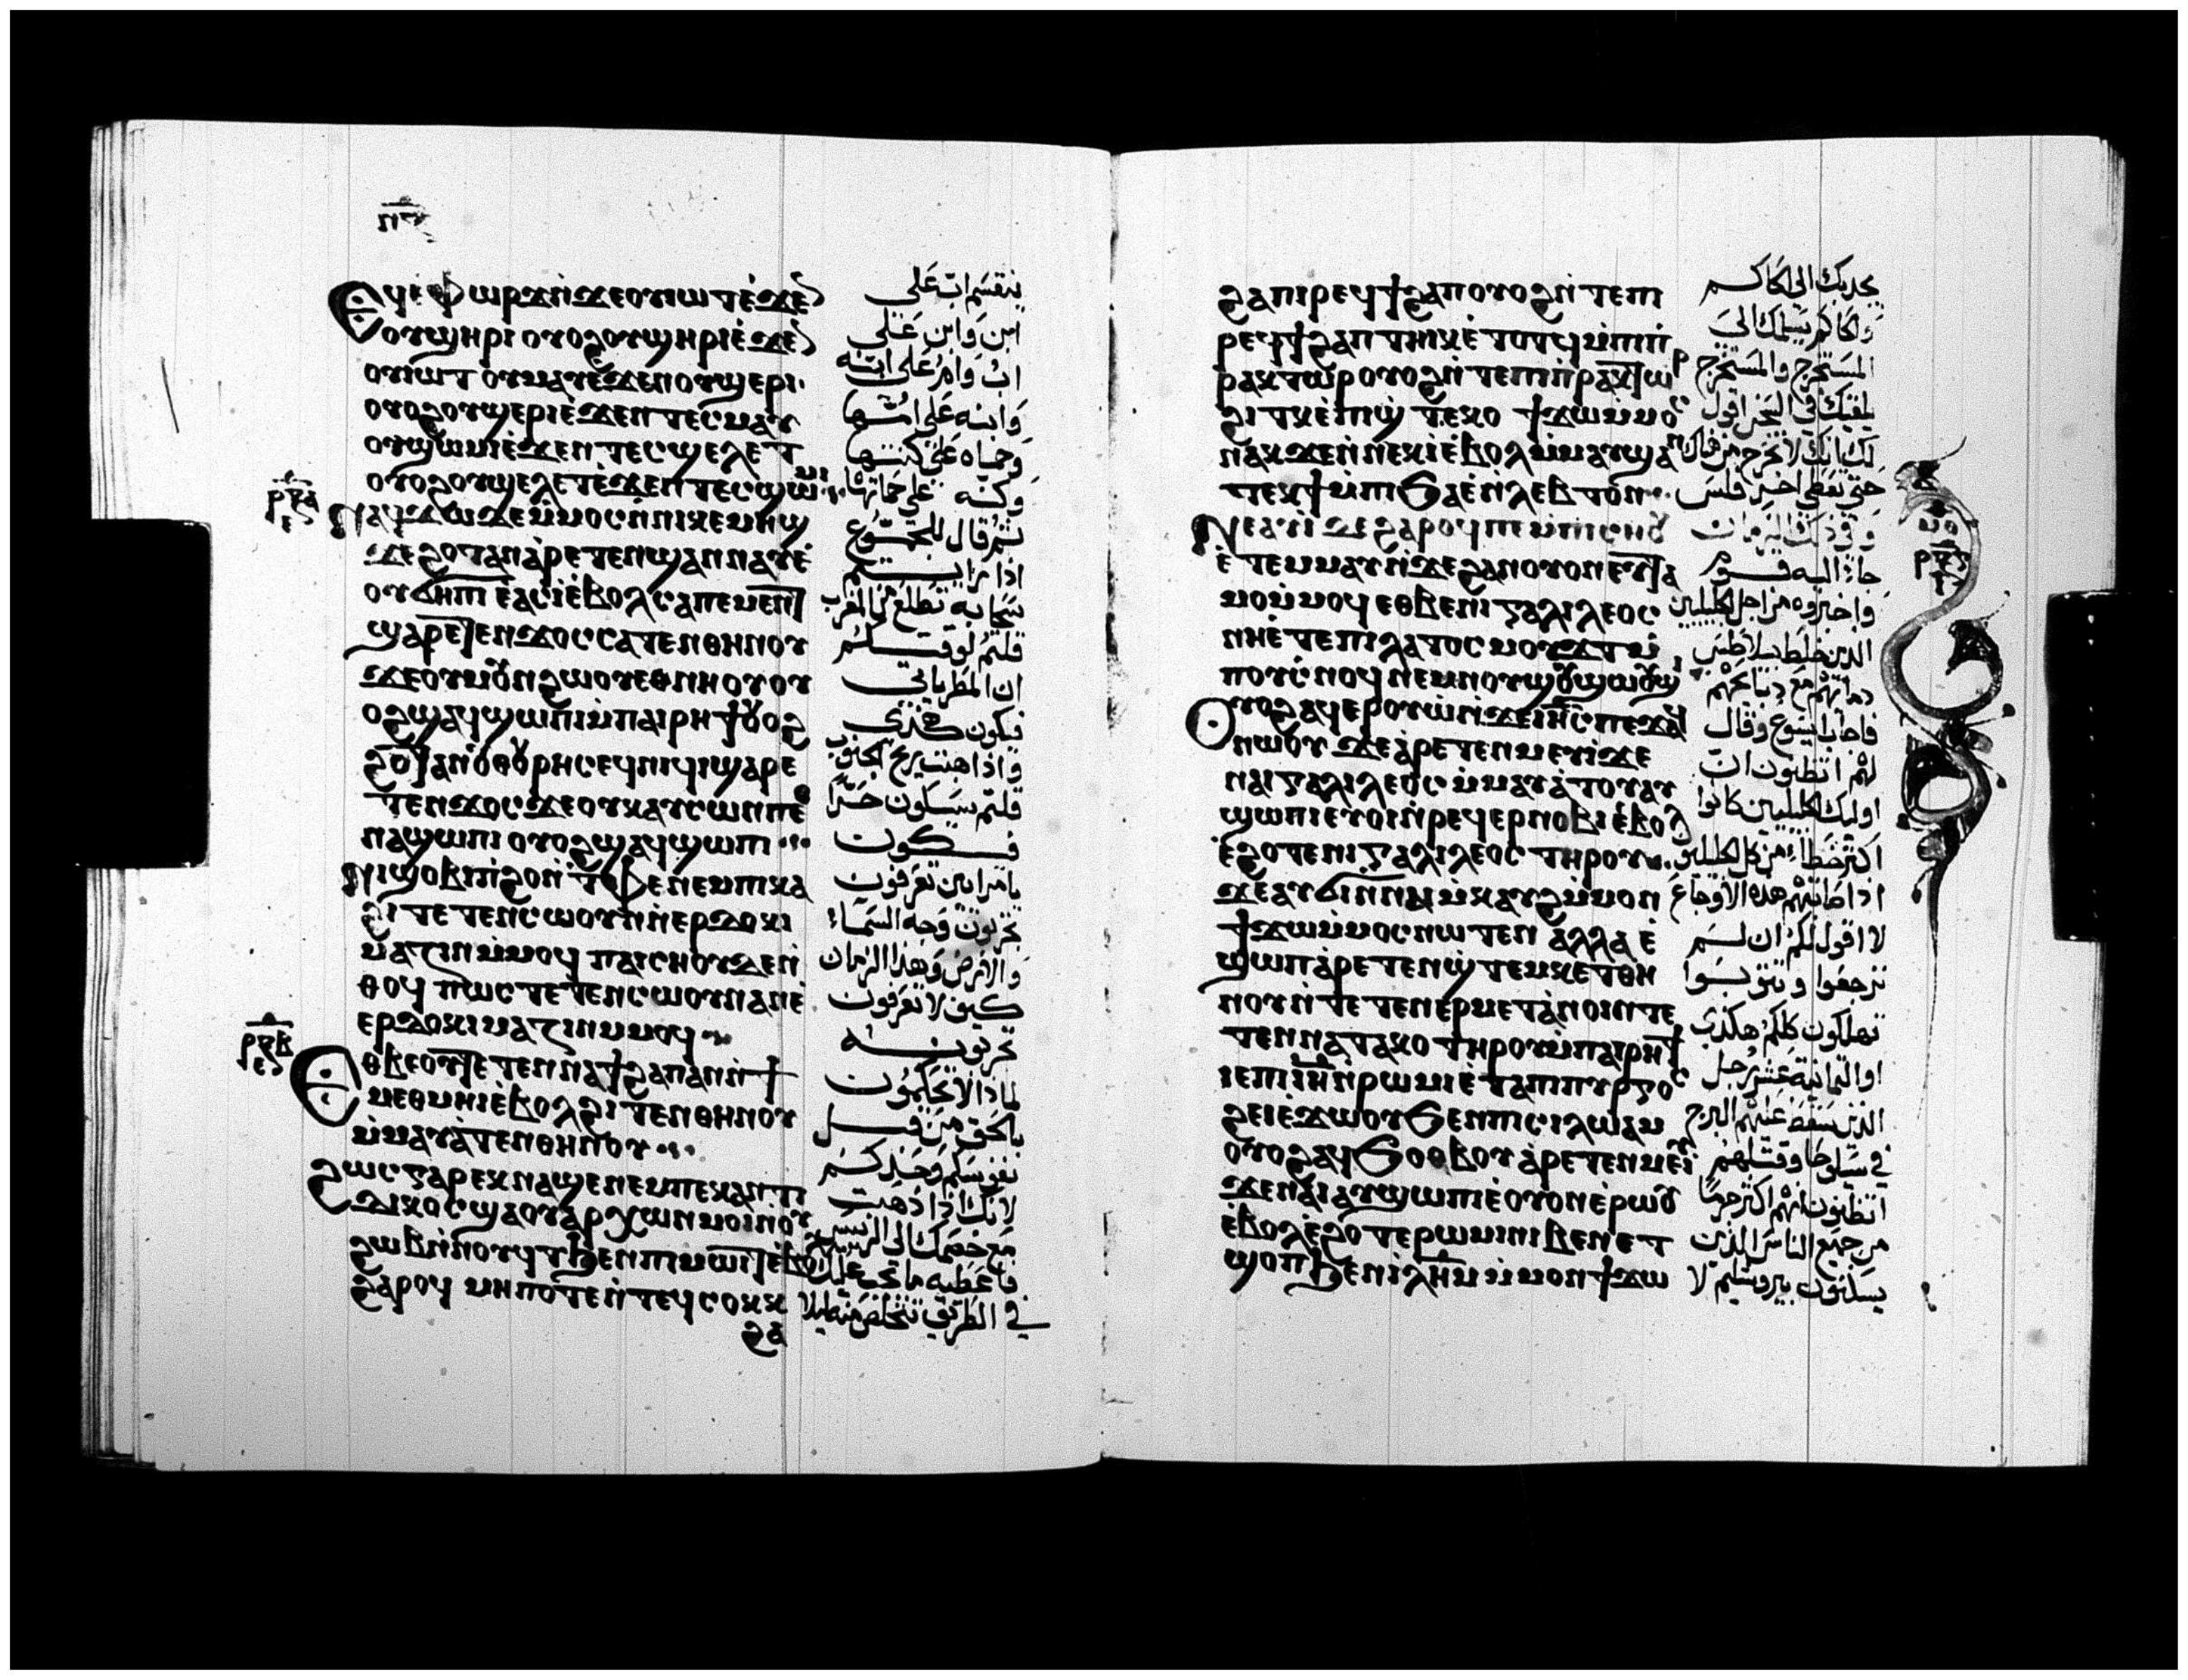 ⲉϥⲉⲫⲱⲣϫ ⲛ̇ϫⲉ ⲟⲩⲓⲱⲧ ⲉ̇ϫⲉⲛ
ⲟⲩϣⲏⲣⲓ ⲟⲩⲟϩ ⲟⲩϣⲏⲣⲓ ⲉ̇ϫⲉⲛ
ⲟⲩⲓⲱⲧ ⲟⲩⲙⲁⲩ ⲉ̇ϫⲉⲛ ⲟⲩϣⲉⲣⲓ
ⲟⲩⲟϩ ⲟⲩϣⲉⲣⲓ ⲉ̇ϫⲉⲛ ⲧⲉⲥⲙⲁⲩ
ⲟⲩϣⲱⲙⲓ ⲉ̇ϫⲉⲛ ⲧⲉⲥϣⲉⲗⲉⲧ
ⲟⲩⲟϩ ⲟⲩϣⲉⲗⲉⲧ ⲉ̇ϫⲉⲛ ⲧⲉⲥϣⲱⲙⲓ
ⲛⲁϥϫⲱ ⲇⲉ ⲙ̇ⲙⲟⲥ ⲛ̇ⲛⲓⲕⲉⲙⲏϣ
ϫⲉ ϩⲟⲧⲁⲛ ⲁ̇ⲣⲉⲧⲉⲛϣⲁⲛⲛⲁⲩ ⲉ̇
ⲟⲩϭⲏⲡⲓ ⲉⲁⲥⲓ̇ ⲉ̇ⲃⲟⲗ ⲥⲁⲡⲉⲙⲉⲛⲧ
ϣⲁⲣⲉⲧⲉⲛϫⲟⲥ ⲥⲁⲧⲉⲛⲑⲏⲛⲟⲩ
ϫⲉ ⲟⲩⲙⲟⲩⲛϩⲱⲟⲩ ⲉⲑⲛⲏⲟⲩ ⲟⲩ
ⲟϩ ϣⲁϥϣⲱⲡⲓ ⲙ̇ⲡⲁⲓⲣⲏϯ ⲟⲩⲟϩ
ϩⲟⲧⲁⲛ ⲟⲩⲑⲟⲩⲣⲏⲥ ⲉϥⲛⲓϥⲓ ϣⲁⲣⲉ
ⲧⲉⲛϫⲟⲥ ϫⲉ ⲟⲩⲕⲁⲩⲥⲱⲛ ⲡⲉⲑ
ⲛⲁϣⲱⲡⲓ ⲟⲩⲟϩ ϣⲁϥϣⲱⲡⲓ
ⲛⲓϣⲟⲃⲓ ⲛ̇ϩⲟ ⲛ̇ⲧⲫⲉ ⲛⲉⲙ ⲡⲕⲁ
ϩⲓ ⲧⲉⲧⲉⲛⲥⲱⲟⲩⲛ ⲛ̇ⲉⲣⲇⲟⲕⲓ
ⲙⲁⲍⲓⲛ ⲙ̇ⲙⲟϥ ⲡⲁⲓⲥⲏⲟⲩ ⲇⲉ ⲛ̇
ⲑⲟϥ ⲡⲱⲥ ⲧⲉⲧⲉⲛⲥⲱⲟⲩⲛ ⲁⲛ ⲉ̇
ⲉⲣⲇⲟⲕⲓⲙⲁⲍⲓⲛ ⲙ̇ⲙⲟϥ
ⲉⲑⲃⲉⲟⲩ ⲧⲉⲧⲉⲛⲛⲁϯϩⲁⲡ ⲁⲛ ⲛ̇ϯ
ⲙⲉⲑⲙⲏⲓ ⲉ̇ⲃⲟⲗ ϩⲓⲧⲉⲛ ⲑⲏⲛⲟⲩ
ⲙ̇ⲙⲁⲩⲁ̇ⲧⲉⲛ ⲑⲏⲛⲟⲩ
ϩⲱⲥ ⲅⲁⲣ ⲉⲕⲛⲁϣⲉ ⲛⲉⲙ ⲡⲉⲕⲁⲛⲧⲓ
ⲇⲓⲕⲟⲥ ϣⲁ ⲟⲩⲁⲣⲭⲱⲛ ⲙⲟⲓ ⲛ̇ⲟⲩ
ϩⲱⲃ ⲛ̇ⲛⲟⲩϥⲧ ϧⲉⲛ ⲡⲓⲙⲱⲓⲧ ⲉ̇ⲃⲟⲗ
ϩⲁⲣⲟϥ ⲙⲏⲡⲟⲧⲉ ⲛ̇ⲧⲉϥⲥⲟⲕⲕ
ϩⲁ
ينقسم اب على
ابن وابن على
اب وام على ابنه
وابنه على امها
وحماه على كنتها
وكنه على حماتها
ثم قال للجموع
اذا رايتم
سحابه تطلع من المغرب
قلتم لوقتكم
ان المطر ياتي
فيكون هكذى
واذا هبت ريح الجنوب
قلتم سيكون حر
فيكون
يا مرايين تعرفون
تجربون وجه السماء
والارض وهذا الزمان
كيف لا تعرفون
تجربونه
لماذا لا تحكمون
بالحق من قبل
نفوسكم وحدكم
لانك اذا ذهبت
مع خصمك الى الرئيس
فاعطيه ما يجب عليك
في الطريق تتخلص منه ليلا
ϩⲁ ⲡⲓⲣⲉϥϯϩⲁⲡ ⲟⲩⲟϩ ⲛ̇ⲧⲉ ⲡⲓ
ⲣⲉϥϯϩⲁⲡ ⲧⲏⲓⲕ ⲉ̇ⲧⲟⲧϥ ⲙ̇ⲡⲓⲡ̇
ⲣⲁⲕⲧⲱⲣ ⲟⲩⲟϩ ⲛ̇ⲧⲉ ⲡⲓⲡ̇ⲣⲁⲕⲧⲱⲣ
ϩⲓⲧⲕ ⲉ̇ⲡⲓϣ̇ⲧⲉⲕⲟ ϯϫⲱ ⲙ̇ⲙⲟⲥ
ⲛⲁⲕ ϫⲉ ⲛ̇ⲛⲉⲕⲓ̇ ⲉ̇ⲃⲟⲗ ⲙ̇ⲙⲁⲩ ϣⲁ
ⲧⲉⲕϯ ⲙ̇ⲡⲓϧⲁⲉ̇ ⲛ̇ⲗⲉⲡⲧⲟⲛ
ⲛⲉⲁⲩⲓ̇ ⲇⲉ ϩⲁⲣⲟϥ ⲡⲉ ⲙ̇ⲡⲓⲥⲏⲟⲩ
ⲉ̇ⲧⲉⲙⲙⲁⲩ ⲛ̇ϫⲉ ϩⲁⲛⲟⲩⲟⲛ ⲉⲩⲧⲁ
ⲙⲟ ⲙ̇ⲙⲟϥ ⲉⲑⲃⲉ ⲛⲓⲅⲁⲗⲓⲗⲉⲟⲥ
ⲛⲏ ⲉ̇ⲧⲉ ⲡⲓⲗⲁⲧⲟⲥ ⲙⲟⲩϫⲧ ⲙ̇
ⲡⲟⲩⲥ̇ⲛⲟϥ ⲛⲉⲙ ⲛⲟⲩϣⲟⲩϣⲱⲟⲩϣⲓ
ⲟⲩⲟϩ ⲁϥⲉⲣⲟⲩⲱ̇ ⲛ̇ϫⲉ ⲓⲏⲥ ⲡⲉϫⲁϥ
ⲛⲱⲟⲩ ϫⲉ ⲁ̇ⲣⲉⲧⲉⲛⲙⲉⲩⲓ̇ ϫⲉ
ⲛⲁⲓⲅⲁⲗⲓⲗⲉⲟⲥ ⲙ̇ⲙⲁⲩⲁ̇ⲧⲟⲩ ⲁⲩ
ϣⲱⲡⲓ ⲉⲩⲟⲓ ⲛ̇ⲣⲉϥⲉⲣⲛⲟⲃⲓ ⲉ̇ⲃⲟⲗ
ⲉ̇ϩⲟⲧⲉ ⲛⲓⲅⲁⲗⲓⲗⲉⲟⲥ ⲧⲏⲣⲟⲩ
ϫⲉ ⲁⲩϭⲓ ⲛ̇ⲛⲁⲓⲙ̇ⲕⲁⲩϩ ⲙ̇ⲙⲟⲛ
ϯϫⲱ ⲙ̇ⲙⲟⲥ ⲛⲱⲧⲉⲛ ⲁⲗⲗⲁ ⲉ̇
ϣⲱⲡ ⲁ̇ⲣⲉⲧⲉⲛϣ̇ⲧⲉⲙⲕⲉⲧ ⲑⲏ
ⲛⲟⲩ ⲛ̇ⲧⲉⲧⲉⲛⲉⲣⲙⲉⲧⲁⲛⲟⲓⲛ ⲧⲉ
ⲧⲉⲛⲛⲁⲧⲁⲕⲟ ⲧⲏⲣⲟⲩ ⲙ̇ⲡⲁⲓⲣⲏϯ
ⲓⲉ ⲡⲓⲓⲏ ⲛ̇ⲣⲱⲙⲓ ⲉ̇ⲧⲁ ⲡⲓⲡⲩⲣⲅⲟⲥ
ϩⲉⲓ ⲉ̇ϫⲱⲟⲩ ϧⲉⲛ ⲡⲓⲥⲓⲗⲱⲁⲙ
ⲟⲩⲟϩ ⲁϥϧⲟⲑⲃⲟⲩ ⲁ̇ⲣⲉⲧⲉⲛⲙⲉⲩⲓ
ϫⲉ ⲛⲁⲓ ⲁⲩϣⲱⲡⲓ ⲉ̇ⲟⲩⲟⲛ ⲉ̇ⲣⲱⲟⲩ
ⲉ̇ⲃⲟⲗ ⲉ̇ϩⲟⲧⲉ ⲣⲱⲙⲓ ⲛⲓⲃⲉⲛ ⲉⲧ
ϣⲟⲡ ϧⲉⲛ ⲓⲗⲏⲙ ⲙ̇ⲙⲟⲛ ϯϫⲱ
يجذبك الى الحاكم
والحاكم يسلمك الى
المستخرج والمستخرج
يلقيك في السجن اقول
لك انك لا تخرج من هناك
حتى تعطي اخر فلس
وفي ذلك الزمان
جاوا اليه قوم
واخبروه من اجل الجليليين
الذين خلط بيلاطس
دماهم مع دبايحهم
فاجاب ايسوع وقال
لهم اتظنون ان
اوليك الجليليين كانوا
اكثر خطا من كل الجليليين
اذا صابتهم هذه الاوجاع
لا اقول لكم ان لم
ترجعوا وتتوبوا
تهلكون كلكم هكذى
او الثمانية عشر رجل
الذين سقط عليهم البرج
في سيلوحا وقتلهم
اتظنون انهم اكثر جرما
من جميع الناس الذين
يسكنون بيروشليم لا